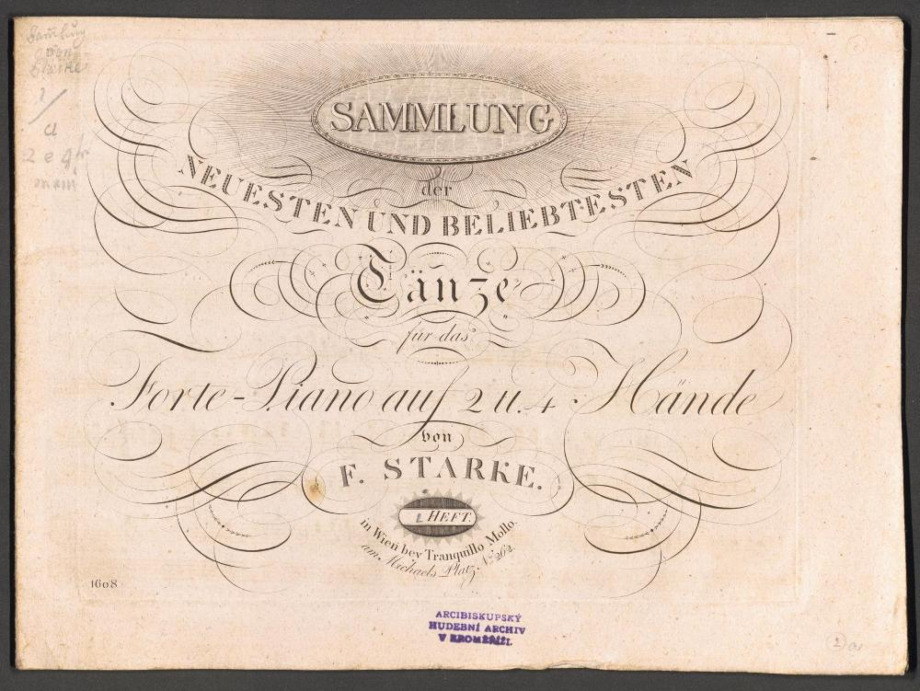 Sam̄lung
von
Starke
1
a
2 e 4
SAMMLUNG
der
NEUESTEN UND BELIEBTESTEN
Tänze
für das
Forte-Piano auf 2 u. 4 Hände
von
F. STARKE.
I. HEFT.
in Wien bey Tranquillo Mollo.
am Michaels Platz N.º 262.
1608
ARCIBISKUPSKÝ
HUDEBNÍ ARCHIV
V KROMĚŘÍŽI.